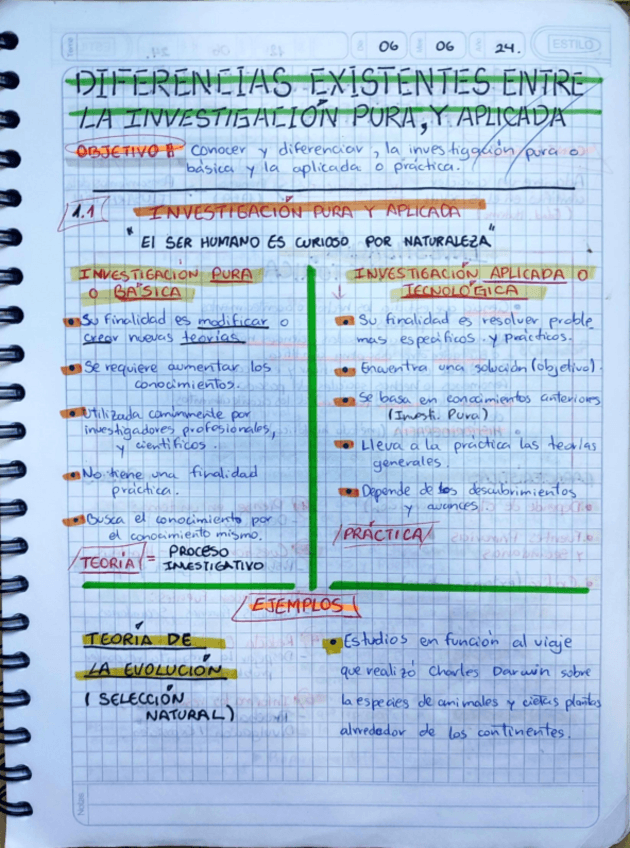 Tema
Día 06 Mes 06 Año 24.
ESTILO
DIFERENCIAS EXISTENTES ENTRE
LA INVESTIGACIÓN PURA, Y APLICADA
OBJETIVO: Conocer y diferenciar, la investigación pura o
básica y la aplicada o práctica.
1.1 INVESTIGACIÓN PURA Y APLICADA
"El SER HUMANO ES CURIOSO POR NATURALEZA"
INVESTIGACIÓN PURA
O BÁSICA
Su finalidad es modificar o
crear nuevas teorías
Se requiere aumentar los
conocimientos.
Utilizada comunmente por
investigadores profesionales,
y científicos.
No tiene una finalidad
práctica.
Busca el conocimiento por
el conocimiento mismo.
TEORÍA = PROCESO
INVESTIGATIVO
INVESTIGACIÓN APLICADA O
TECNOLÓGICA
Su finalidad es resolver proble
mas específicos y prácticos.
Encuentra una solución (objetivo).
Se basa en conocimientos anteriores
(Invest. Pura)
Lleva a la práctica las teorías
generales.
Depende de los descubrimientos
y avances
PRÁCTICA
EJEMPLOS
TEORÍA DE
LA EVOLUCIÓN
(SELECCIÓN
NATURAL)
Estudios en función al viaje
que realizó Charles Darwin sobre
la especies de animales y ciertas plantas
alrrededor de los continentes.
Notas